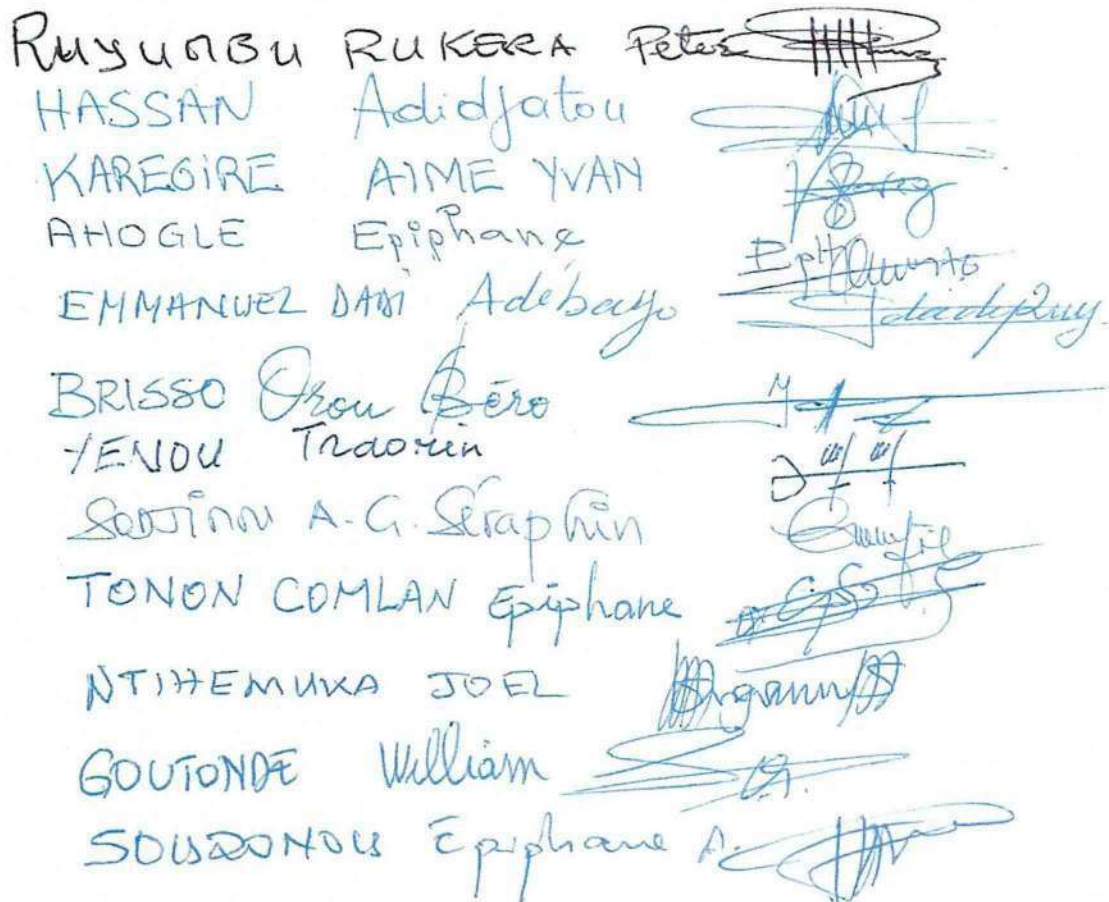 RUYUMBU RUKERA Peter
HASSAN Adidjatou
KAREGIRE AIME YVAN
AHOGLE Epiphane
EMMANUEL DADI Adébayo
BRISSO Orou Béro
YENOU Traorin
A.G. Séraphin
TONON COMLAN Epiphane
NTIHEMUKA JOEL
GOUTONDE William
Epiphane A.